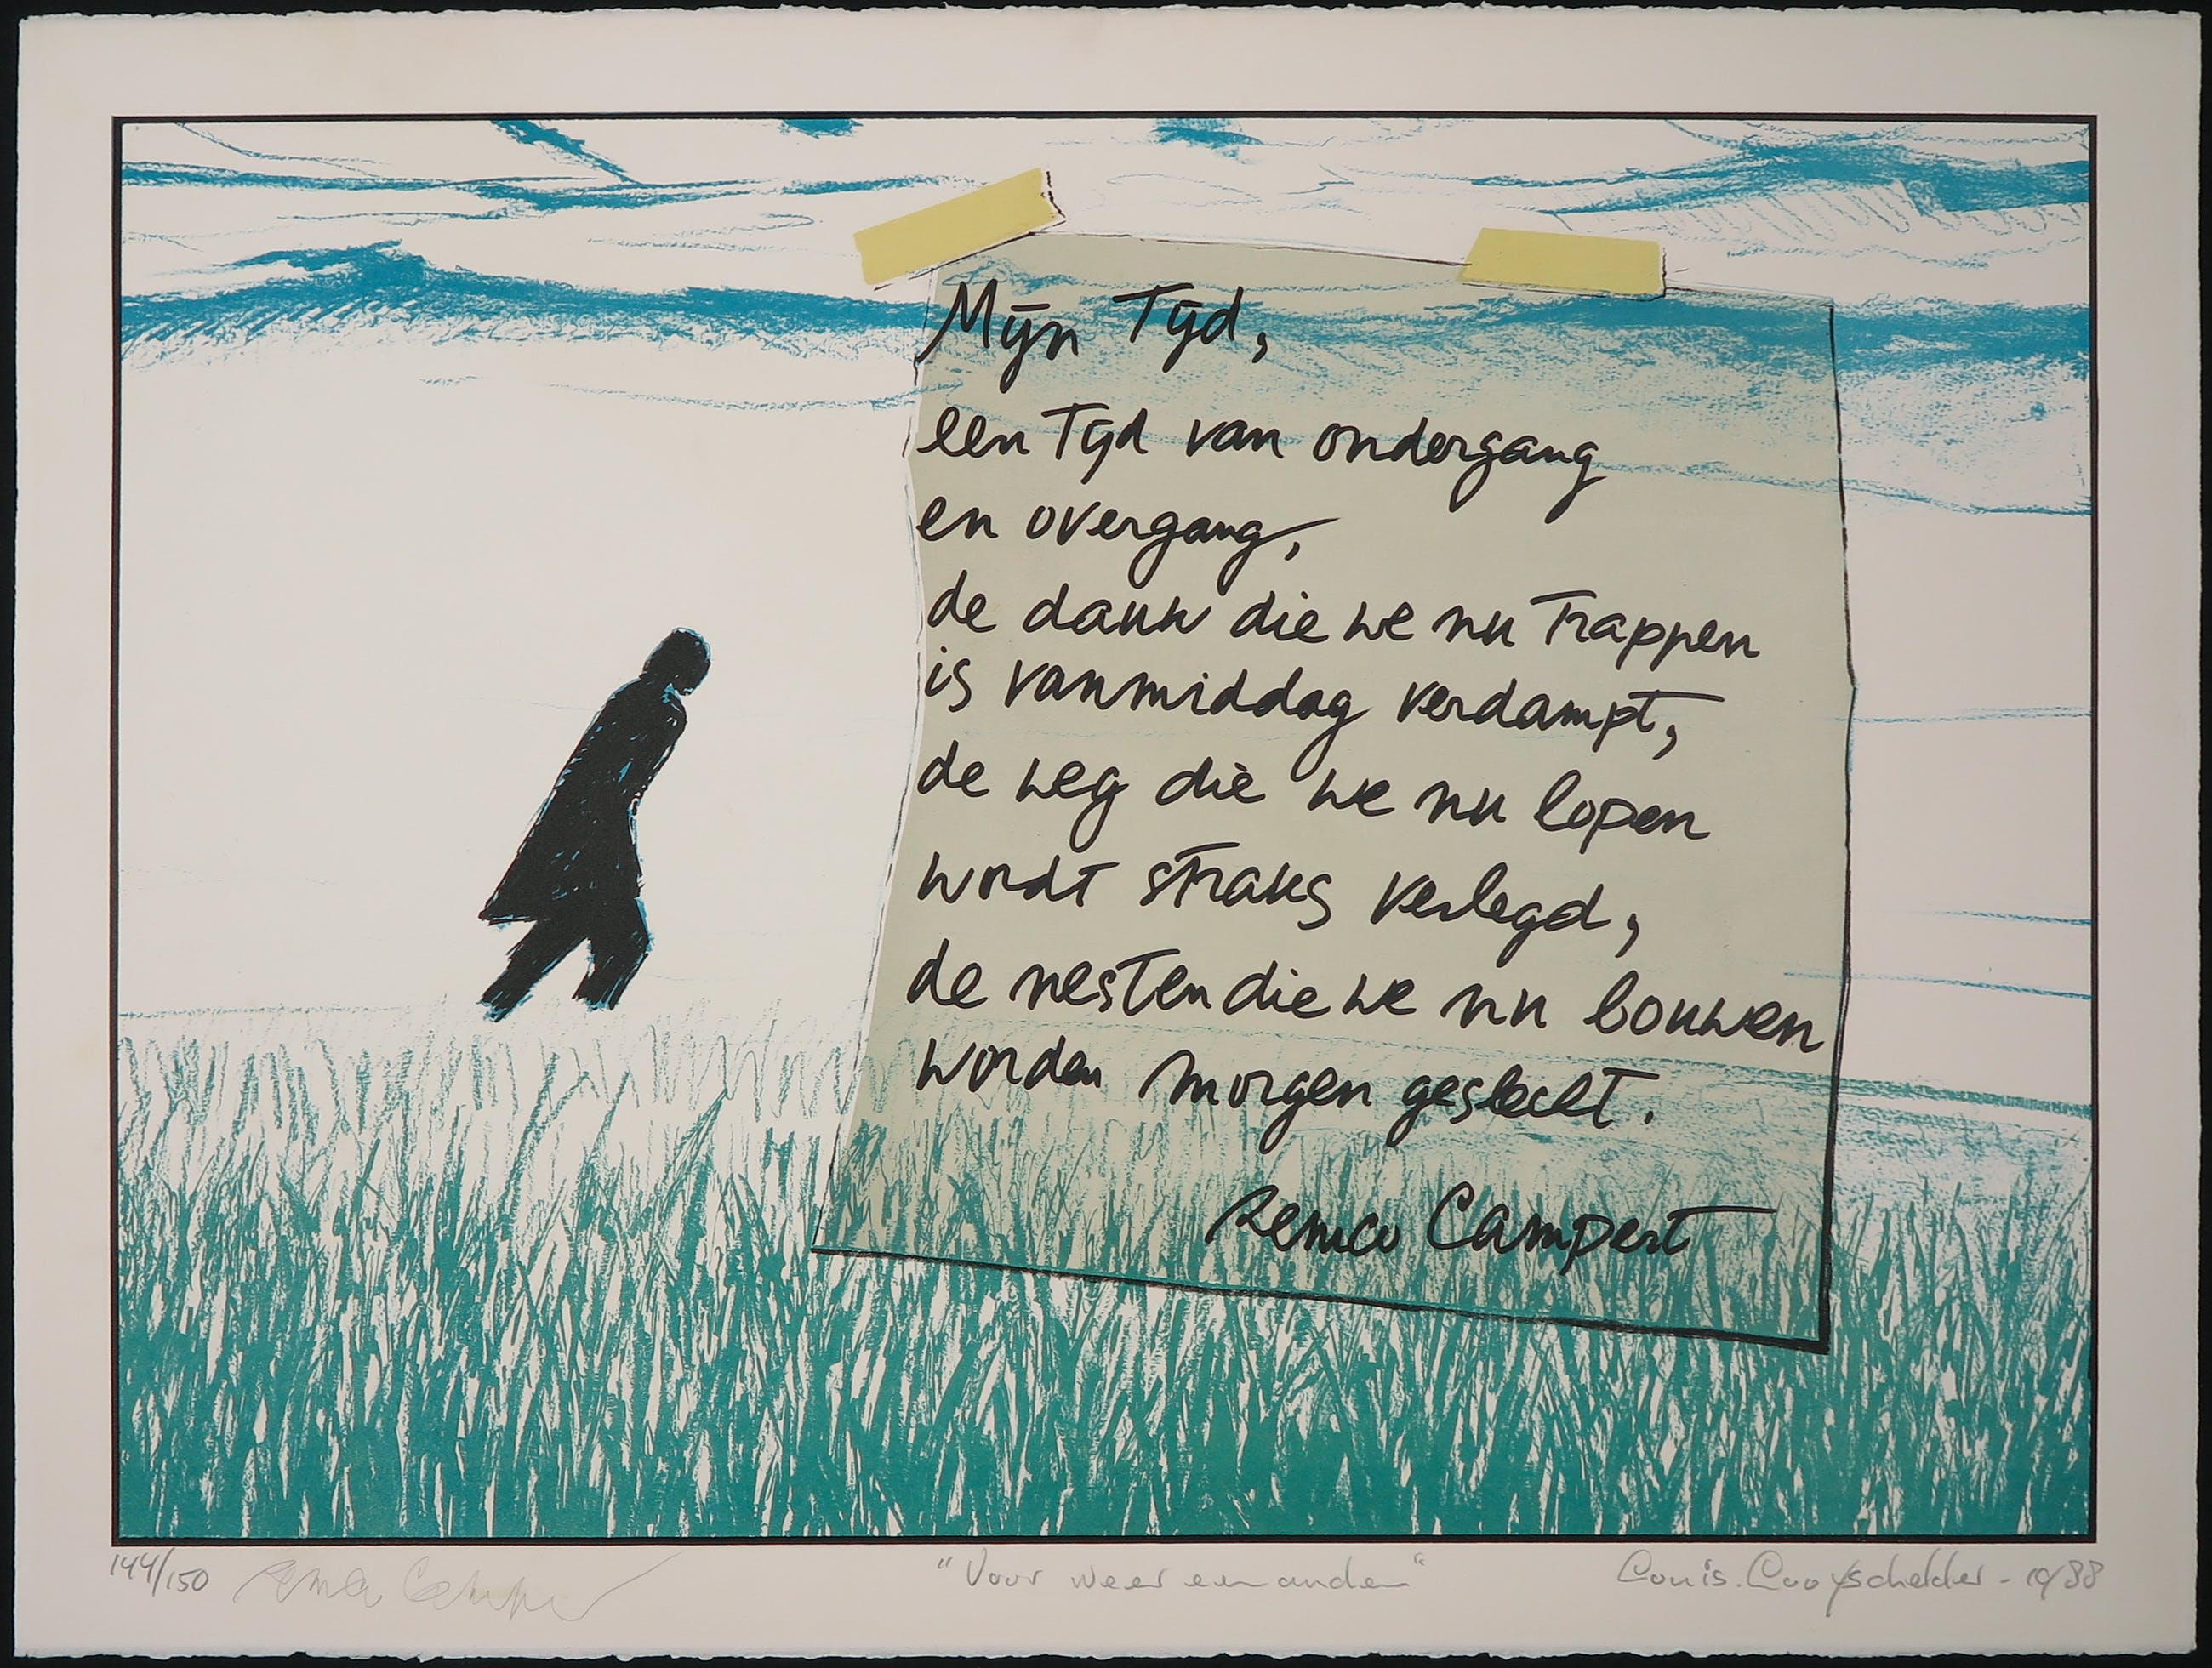 Mijn Tijd,
een Tijd van ondergang
en overgang,
de dauw die we nu Trappen
is vanmiddag verdampt,
de weg die we nu lopen
wordt straks verlegd,
de nesten die we nu bouwen
worden morgen geslecht.
Remco Campert
144/150 Remco Campert "Voor weer een ander" Louis. Looyschelder - 1988